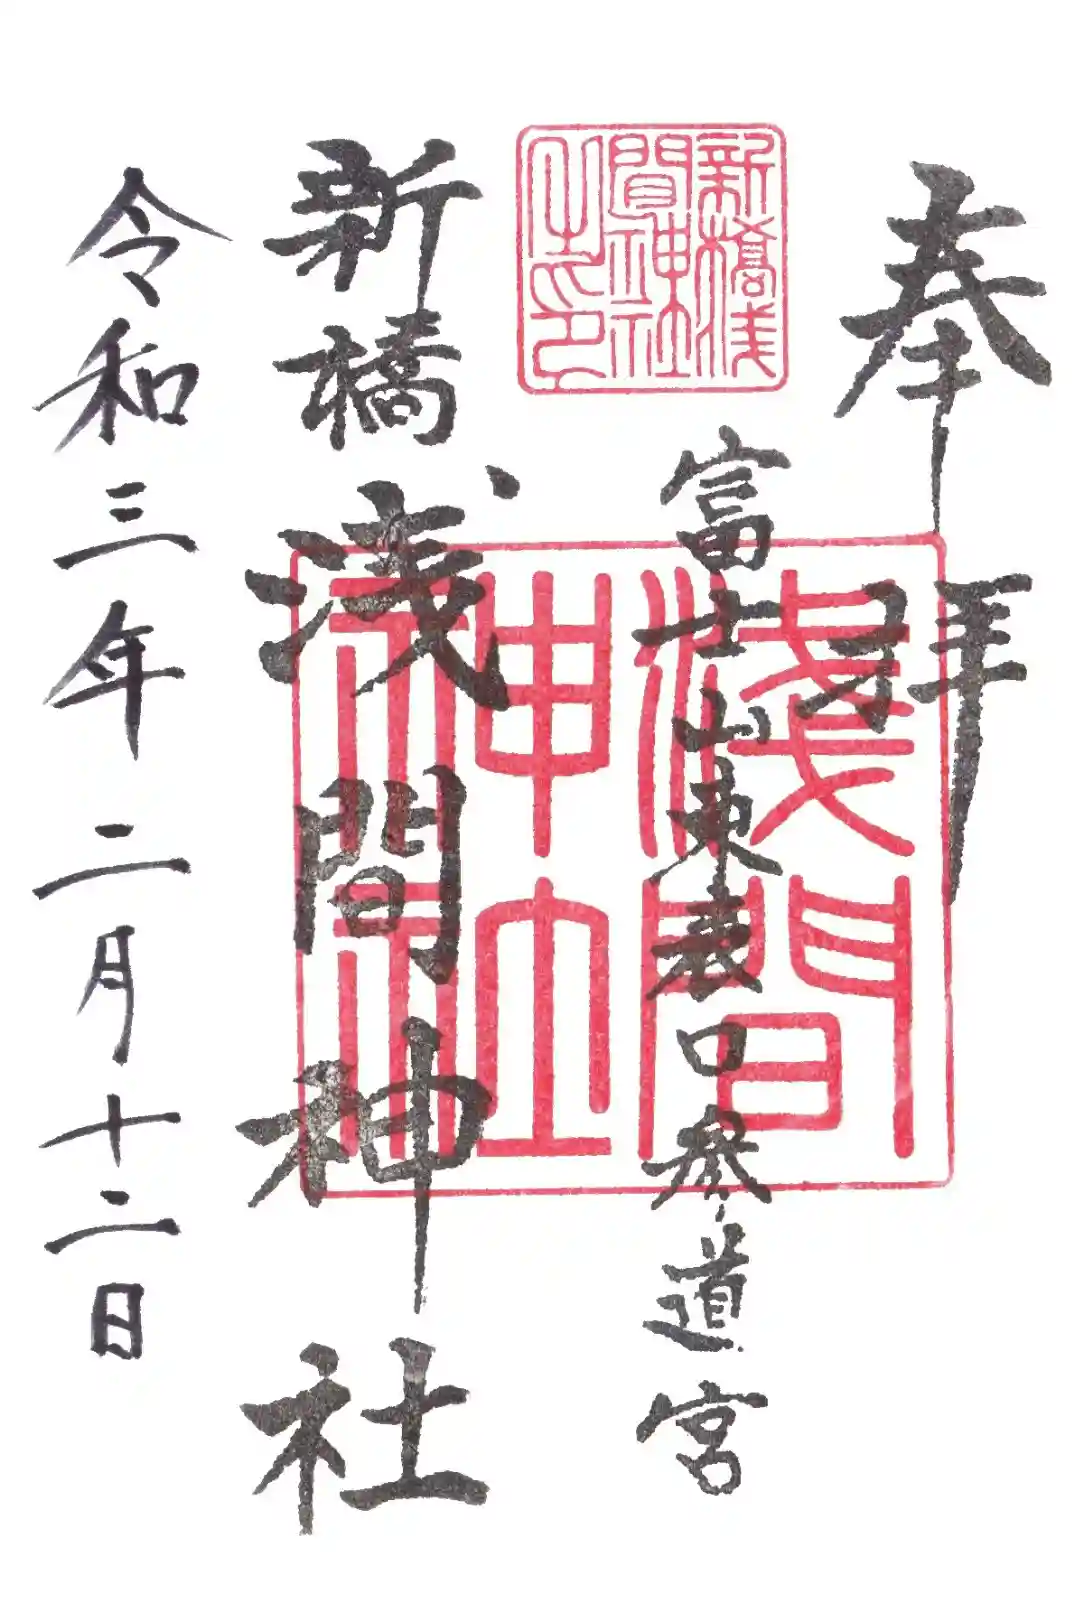 奉拝
富士山東表口参道宮
新橋浅間神社之印
浅間神社
新橋浅間神社
令和三年二月十二日